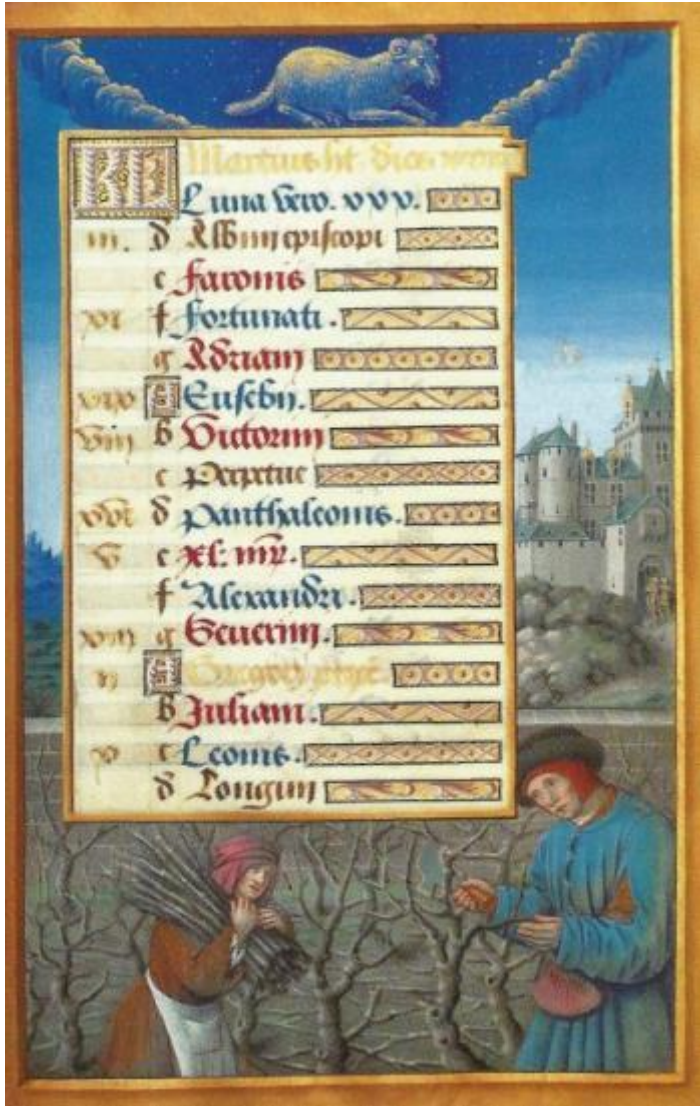 KL Martius ht dies xxxi
Luna vero. xxx.
iii. d Albini episcopi
e Faronis
xi f Fortunati.
g Adriani
xix A Eusebii.
viii b Victorini
c Perpetue
xvi d Panthaleonis.
v e xl: mr.
f Alexandri.
xiii g Severini.
ii A Gregorii
b Juliani.
x c Leonis.
d Longini